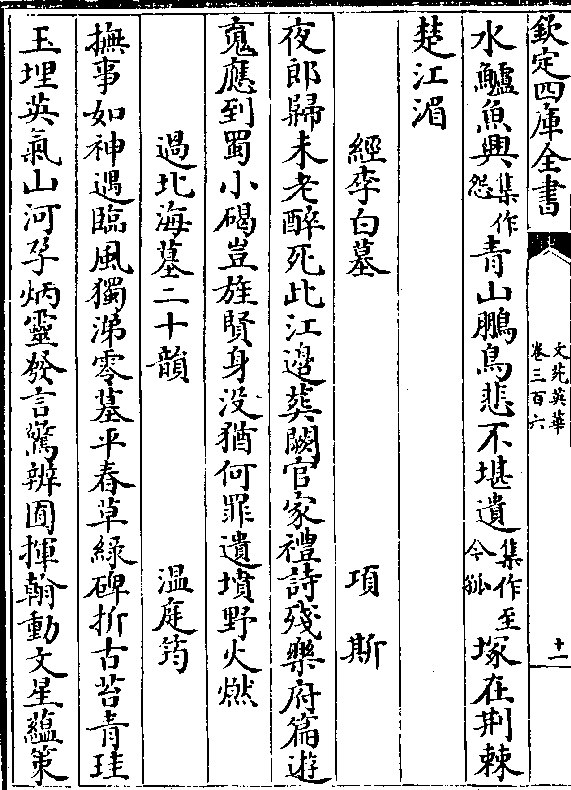 欽定四庫全書
文苑英華
卷三百六
十一
水鱸魚興集作怨青山鵬鳥悲不堪遺集作至今孤塚在荆棘
楚江湄
經李白墓　項斯
夜郎歸未老醉死此江邊葬闕官家禮詩殘樂府篇遊
䰟應到蜀小碣豈旌賢身没猶何罪遺墳野火燃
過北海墓二十韻　温庭筠
撫事如神遇臨風獨涕零墓平春草緑碑折古苔青珪
玉埋英氣山河孕炳靈發言驚辨囿揮翰動文星藴策